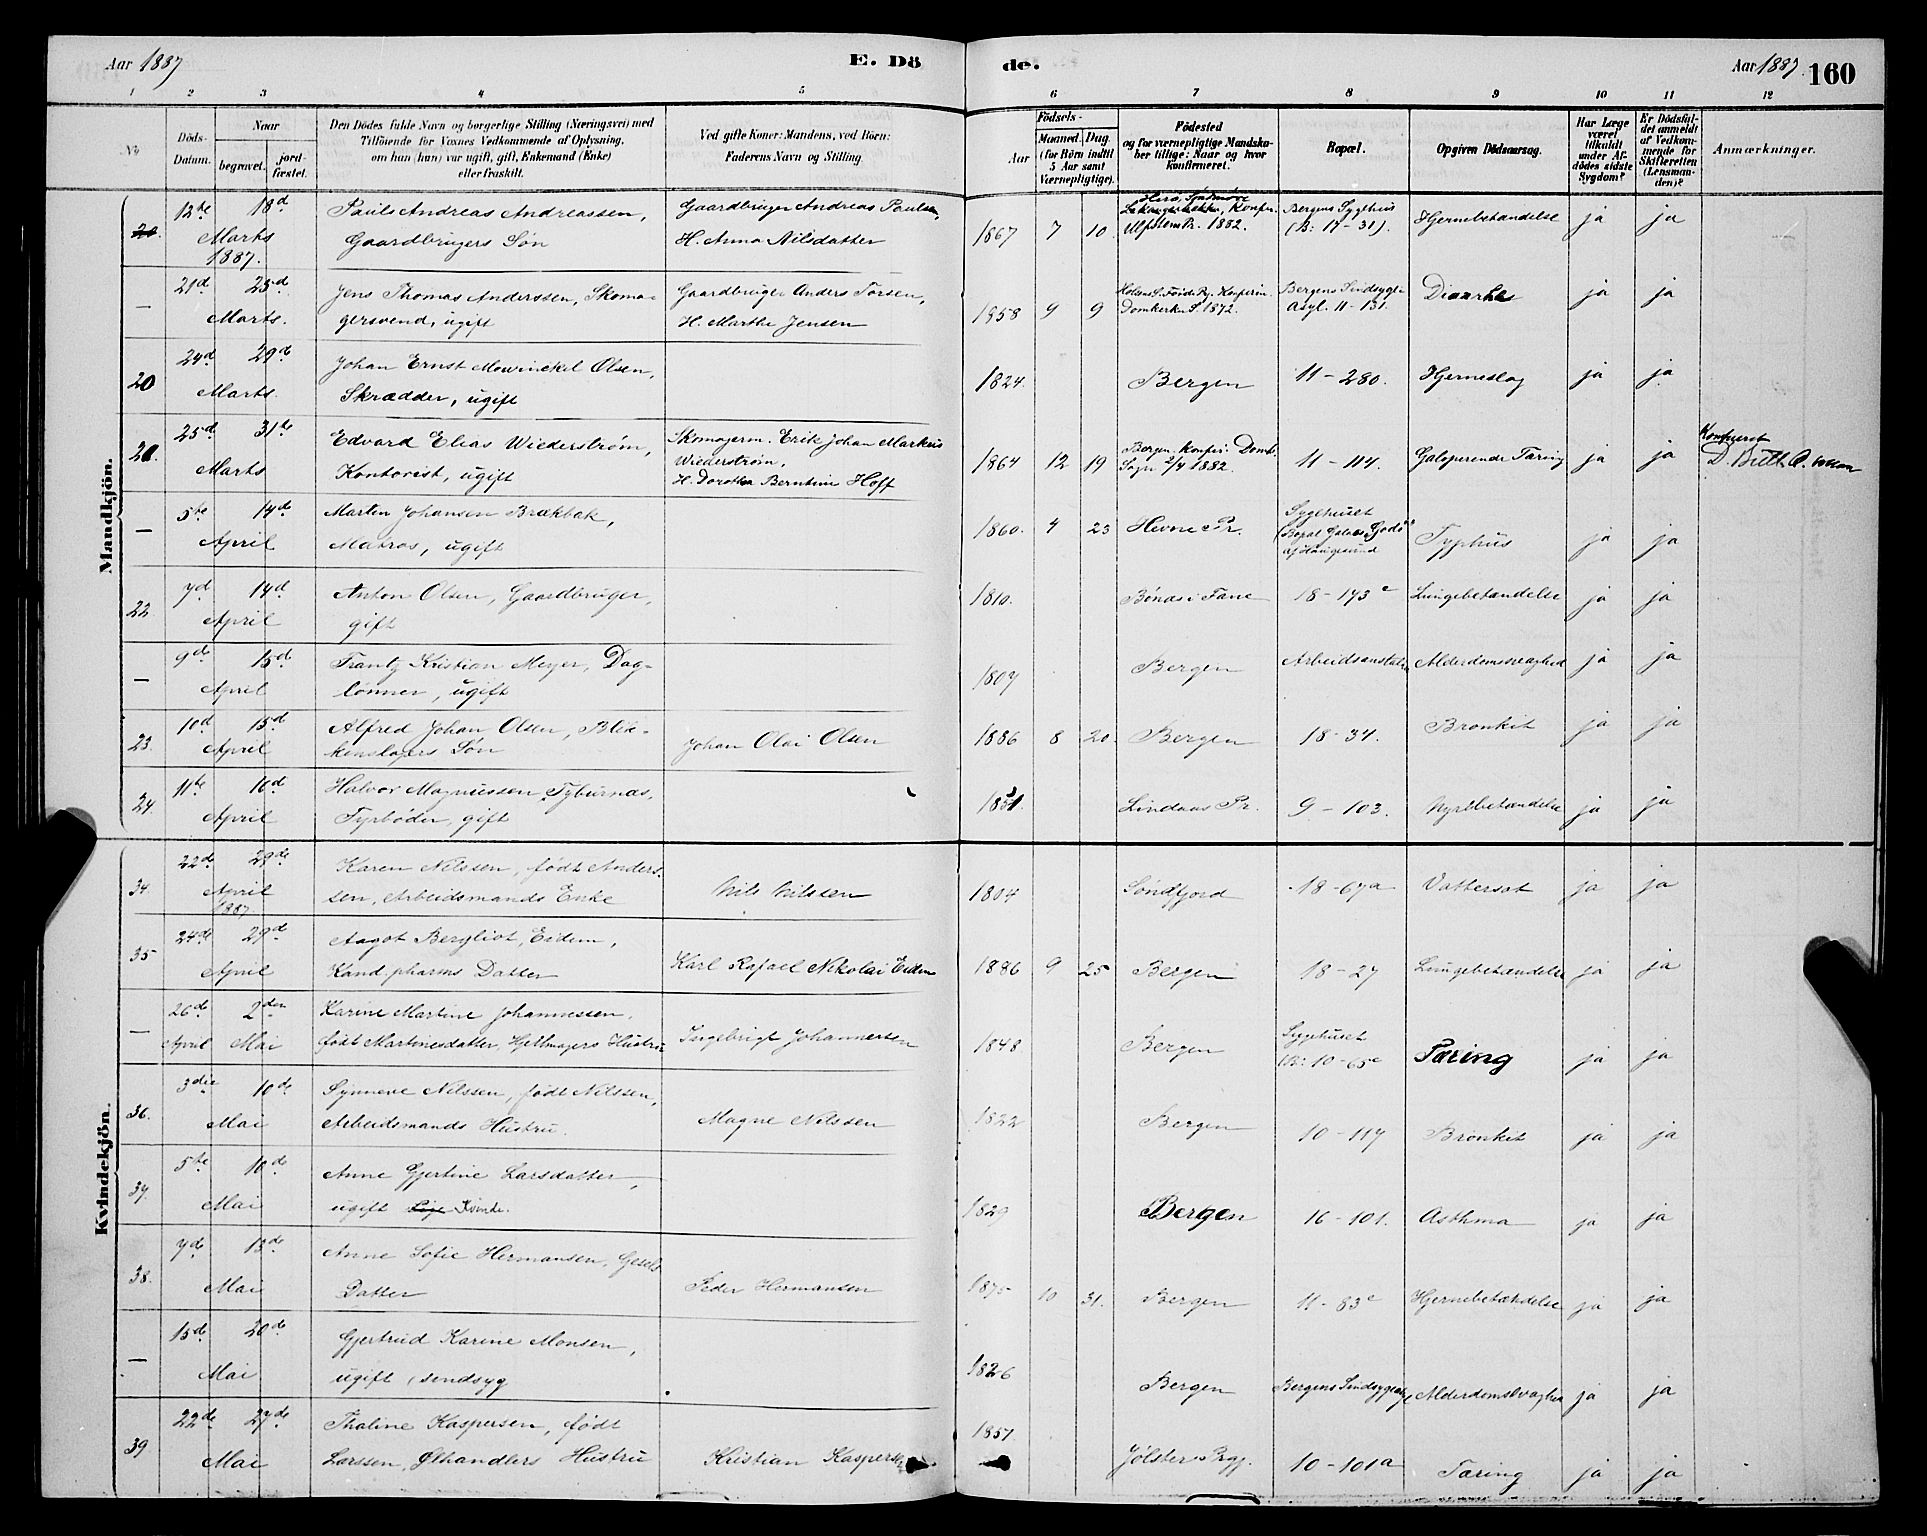 Aar 1887 E. Dö de. Aar 1887. 160
1 2 3 4 5 6 7 8 9 10 11 12
No
Döds-Datum.
Naar
begravet.
jord-fæstet.
Den Dödes fulde Navn og borgerlige Stilling (Næringsvei) med
Tilföiende for Voxnes Vedkommende af Oplysning,
om han (hun) var ugift, gift, Enkemand (Enke)
eller fraskilt.
Ved gifte Koner: Mandens, ved Börn:
Faderens Navn og Stilling.
Födsels-
Aar
Maaned. Dag.
(for Börn indtil
5 Aar samt
Værnepligtige).
Födested
og for værnepligtige Mandska-
ber tillige: Naar og hvor
konfirmeret.
Bopæl.
Opgiven Dödsaarsag.
Har Læge
været
tilkaldt
under Af-
dödes sidste
Sygdom?
Er Dödsfal-
det anmeldt
af Vedkom-
mende for
Skifteretten
(Lensman-
den)?
Anmærkninger.
Mandkjön.
20. 12te 18d Marts 1887.
Pauls Andreas Andreassen,
Gaardbrugers Søn
Gaardbruger Andreas Paulsen,
H. Anna Nilsdatter
1867 7 10
Ulfsteen Pr. 1882.
Bergens Sygehus
(B: 17-31).
Hjernebetændelse ja ja
— 21d 25d Marts.
Jens Thomas Anderssen, Skoma-
gersvend, ugift
Gaardbruger Anders Torsen,
H. Marthe Jensen
1858 9 9
Domkerken 1872.
Bergens Sindsyge
Asyl. 11-131.
Diaarhe ja ja
20 24d 29de Marts.
Johan Ernst Mowinckel Olsen,
Skrædder, ugift
1824. Bergen 11-280. Hjerneslag ja ja
21. 25d 31te Marts
Edvard Elias Wiederstrøm,
Kontorist, ugift
Skomagerm. Erik Johan Markus
Wiederstrøm,
H. Dorothea Berntine Hoff
1864 12 19
Bergen. Konfir. Domk.
Sogn 2/4 1882.
11-114. Galoperende Tæring ja ja
— 5te 14de April
Marten Johansen Brækbak,
Matros, ugift
1860. 4 23 Hevne Pr.
Sygehuset
af Haugesund
Typhus ja ja
22 7d 14d April
Anton Olsen, Gaardbruger,
gift
1810. Bönæs i Fane 18-173c Lungebetændelse ja ja
— 9de 15de April
Frantz Kristian Meyer, Dag-
lønner, ugift
1807 Bergen Arbeidsanstalten Alderdomssvaghed ja ja
23. 10d 15d April
Alfred Johan Olsen, Blik-
kenslagers Søn
Johan Olai Olsen
1886 8 20 Bergen 18-34. Bronkit ja ja
24. 11te 16d April
Halvor Magnussen Tyburnæs,
Fyrbøder, gift
1851 Lindaas Pr. 9-103. Nyrebetændelse ja ja
Kvindekjön.
34. 22de 29de April 1887.
Karen Nilssen, født Anders-
sen, Arbeidsmands Enke
Nils Nilssen
1804 Söndfjord 18-67a Vattersot ja ja
35 24de 29d April
Aagot Bergliot, Eidem,
Kand. pharms Datter
Karl Rafael Nikolai Eidem
1886 9 25 Bergen 18-27 Lungebetændelse ja ja
— 26de April 2den Mai
Karine Martine Johannessen,
født Martinesdatter, Hjelmagers Hustru
Ingebrigt Johannessen
1848. Bergen
Sygehuset
(B: 10-65c
Tæring ja ja
36. 3die 10de Mai
Synneve Nilssen, født Nilssen,
Arbeidsmands Hustru.
Magne Nilssen
1822 Bergen 10-117 Bronkit ja ja
37. 5te 10de Mai
Anne Gjertine Larsdatter,
ugift Pige Kvinde.
1829 Bergen 16-101. Asthma ja ja
38. 7de 13de Mai
Anne Sofie Hermansen, Gesels
Datter
Peder Hermansen
1875 10 31. Bergen 11-83c Hjernebetændelse ja ja
— 15de 20de Mai
Gjertrud Karine Monsen,
ugift, sindsyg
1826 Bergen Bergens Sindsygeasyl Alderdomssvaghed ja ja
39 22de 27de Mai
Thaline Kaspersen, født
Larssen, Ølhandlers Hustru
Kristian Kaspersen
1857. Jølster Prgj. 10-101a Tæring ja ja